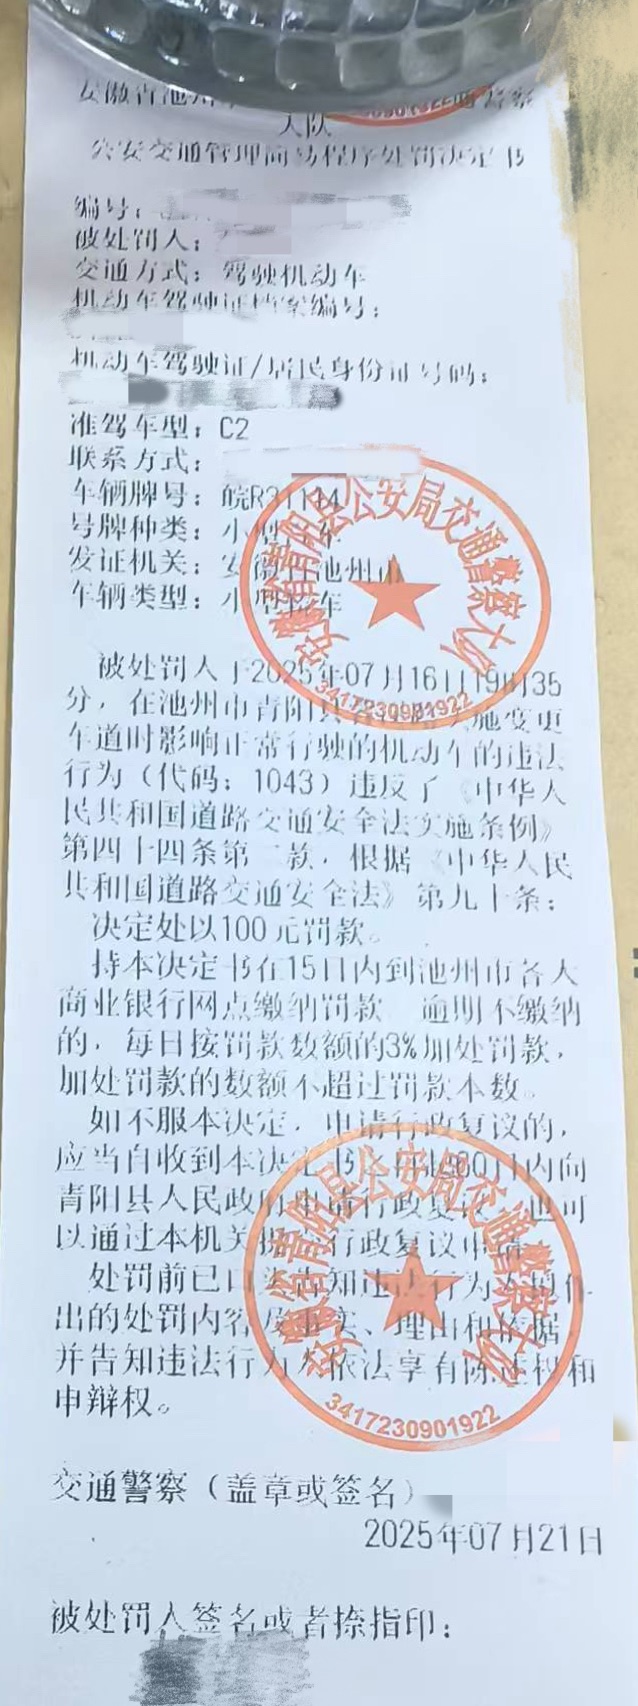 安徽省池州
大队
公安交通管理简易程序处罚决定书
编号：
被处罚人：
交通方式：驾驶机动车
机动车驾驶证档案编号：
机动车驾驶证/居民身份证号码：
准驾车型：C2
联系方式：
车辆牌号：皖R31114
号牌种类：小型汽车
发证机关：安徽省池州市
车辆类型：小型轿车
被处罚人于2025年07月16日19时35
分，在池州市青阳县 实施变更
车道时影响正常行驶的机动车的违法
行为（代码：1043）违反了《中华人
民共和国道路交通安全法实施条例》
第四十四条第二款，根据《中华人民
共和国道路交通安全法》第九十条；
决定处以100元罚款。
持本决定书在15日内到池州市各大
商业银行网点缴纳罚款 逾期不缴纳
的，每日按罚款数额的3%加处罚款，
加处罚款的数额不超过罚款本数。
如不服本决定，申请行政复议的，
应当自收到本决定书之日起60日内向
青阳县人民政府申请行政复议，也可
以通过本机关提交行政复议申请
处罚前已口头告知违法行为人拟作
出的处罚内容及事实、理由和依据，
并告知违法行为人依法享有陈述权和
申辩权。
交通警察（盖章或签名）
2025年07月21日
被处罚人签名或者捺指印：
安徽省青阳县公安局交通警察大队
3417230901922
安徽省青阳县公安局交通警察大队
3417230901922